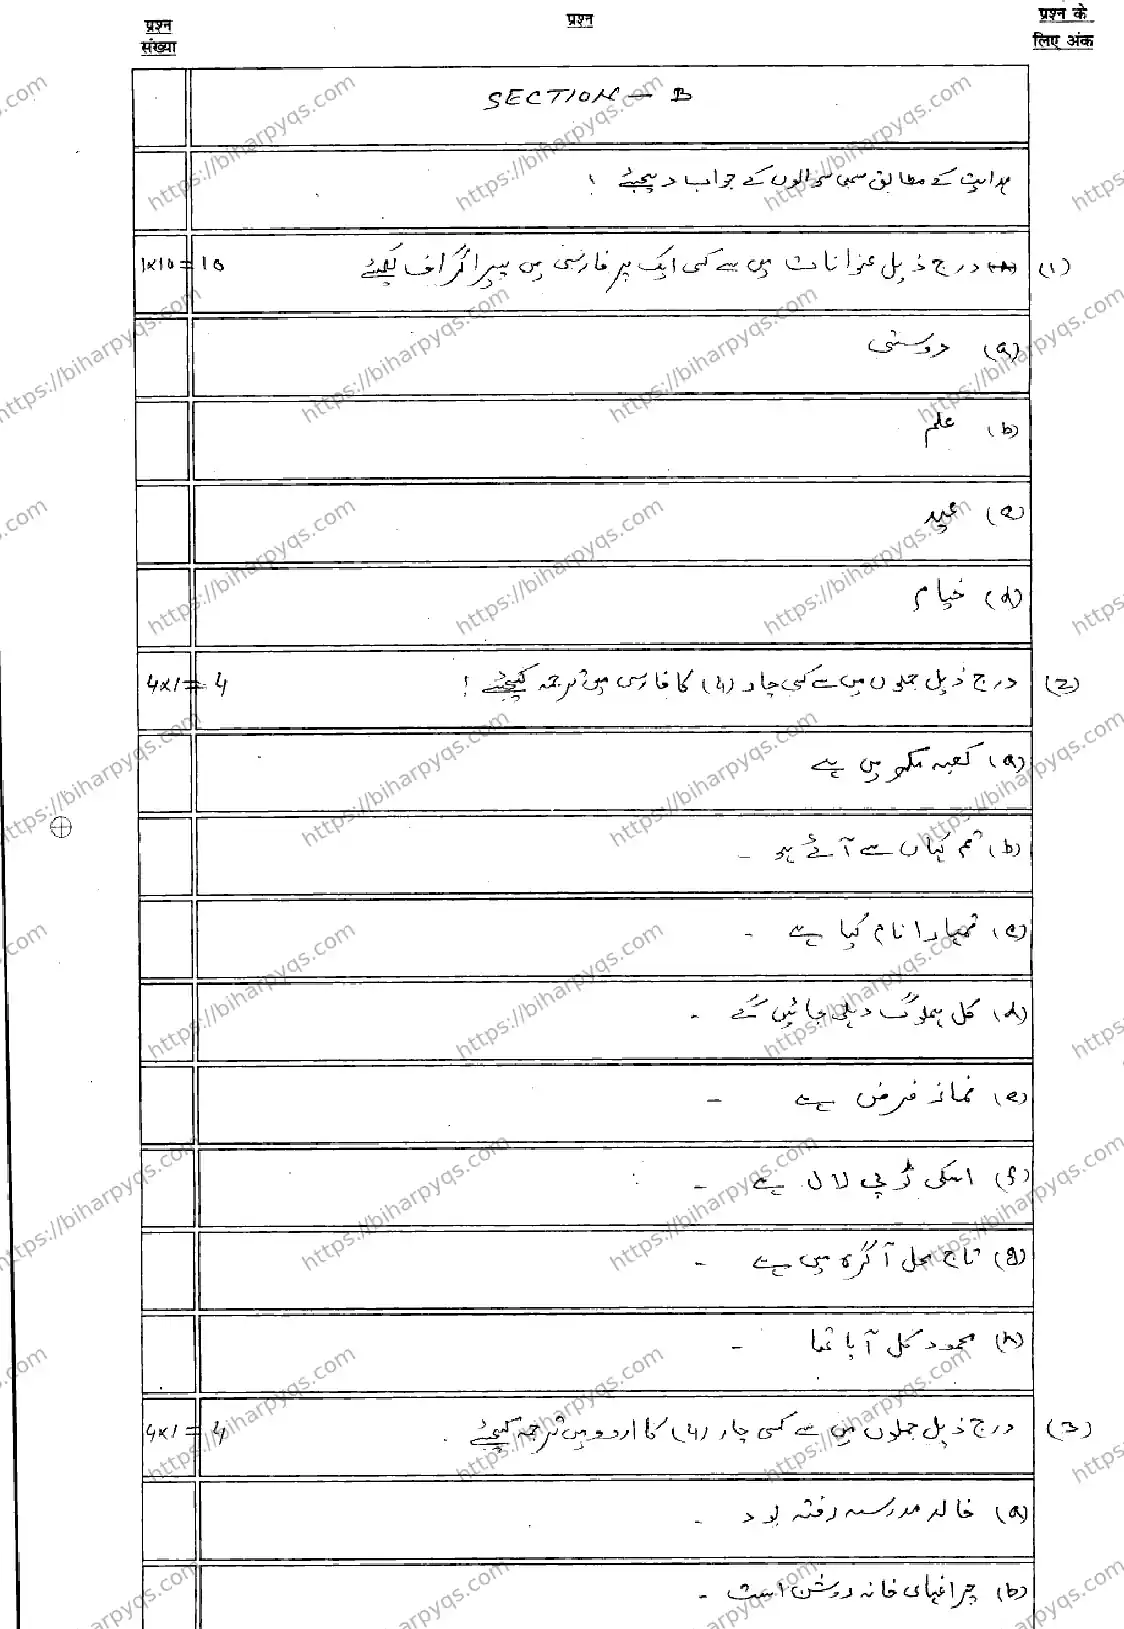 प्रश्न संख्या
प्रश्न
प्रश्न के लिए अंक
SECTION - B
ہدایت کے مطابق سبھی سوالوں کے جواب دیجئے !
(1) درج ذیل عنوانات میں سے کسی ایک پر فارسی میں پیراگراف لکھئے 1x10=10
(a) دوستی
(b) علم
(c) عید
(d) خیام
(2) درج ذیل جملوں میں سے کسی چار (4) کا فارسی میں ترجمہ کیجئے ! 4x1=4
(a) کعبہ مکہ میں ہے
(b) تم کہاں سے آئے ہو -
(c) تمہارا نام کیا ہے -
(d) کل ہملوگ دہلی جائیں گے -
(e) نماز فرض ہے -
(f) اسکی ٹوپی لال ہے -
(g) تاج محل آگرہ میں ہے -
(h) محمود کل آیا تھا -
(3) درج ذیل جملوں میں سے کسی چار (4) کا اردو میں ترجمہ کیجئے . 4x1=4
(a) خالد مدرسہ رفتہ بود -
(b) چراغہای خانہ روشن است -
https://biharpyqs.com